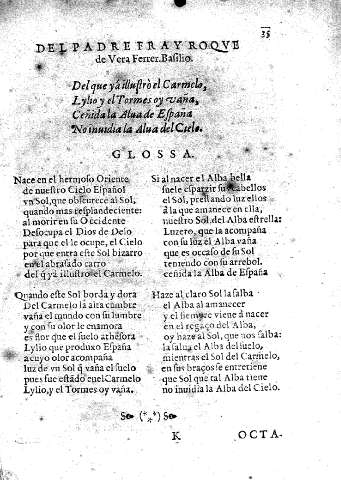 35
DEL PADRE FRAY ROQVE
de Vera Ferrer. Basilio.
Del que yá illustrò el Carmelo,
Lylio y el Tormes oy vaña,
Ceñida la Alua de España
No inuidia la Alua del Cielo.
GLOSSA.
Nace en el hermoso Oriente
de nuestro Cielo Español
vn Sol, que obscurece al Sol,
quando mas resplandeciente:
al morir en su Occidente
Desocupa el Dios de Delo
para que el le ocupe, el Cielo
por que entra este Sol bizarro
en el abrasado carro
del q̃ ya illustro el Carmelo.
Quando este Sol borda y dora
Del Carmelo la alta cumbre
vaña el mundo con su lumbre
y con su olor le enamora
es flor que el suelo athesora
Lylio que produxo España
a cuyo olor acompaña
luz de vn Sol q̃ vaña el suelo
pues fue estãdo en el Carmelo
Lylio, y el Tormes oy vaña.
Si al nacer el Alba bella
suele esparzir su cabellos
el Sol, prestando luz ellos
à la que amanece en ella,
nuestro Sol del Alba estrella:
Luzero, que la acompaña
con su luz el Alba vaña
que es occaso de su Sol
teniendo con su arrebol.
ceñida la Alba de España
Haze al claro Sol la salba
el Alba al amanecer
y el tiempo viene à nacer
en el regaço del Alba,
oy haze al Sol, que nos salba:
la salua el Alba del suelo,
mientras el Sol del Carmelo,
en sus braços se entretiene
que Sol que tal Alba tiene
no inuidia la Alba del Cielo.
(*⁎*)
K
OCTA-